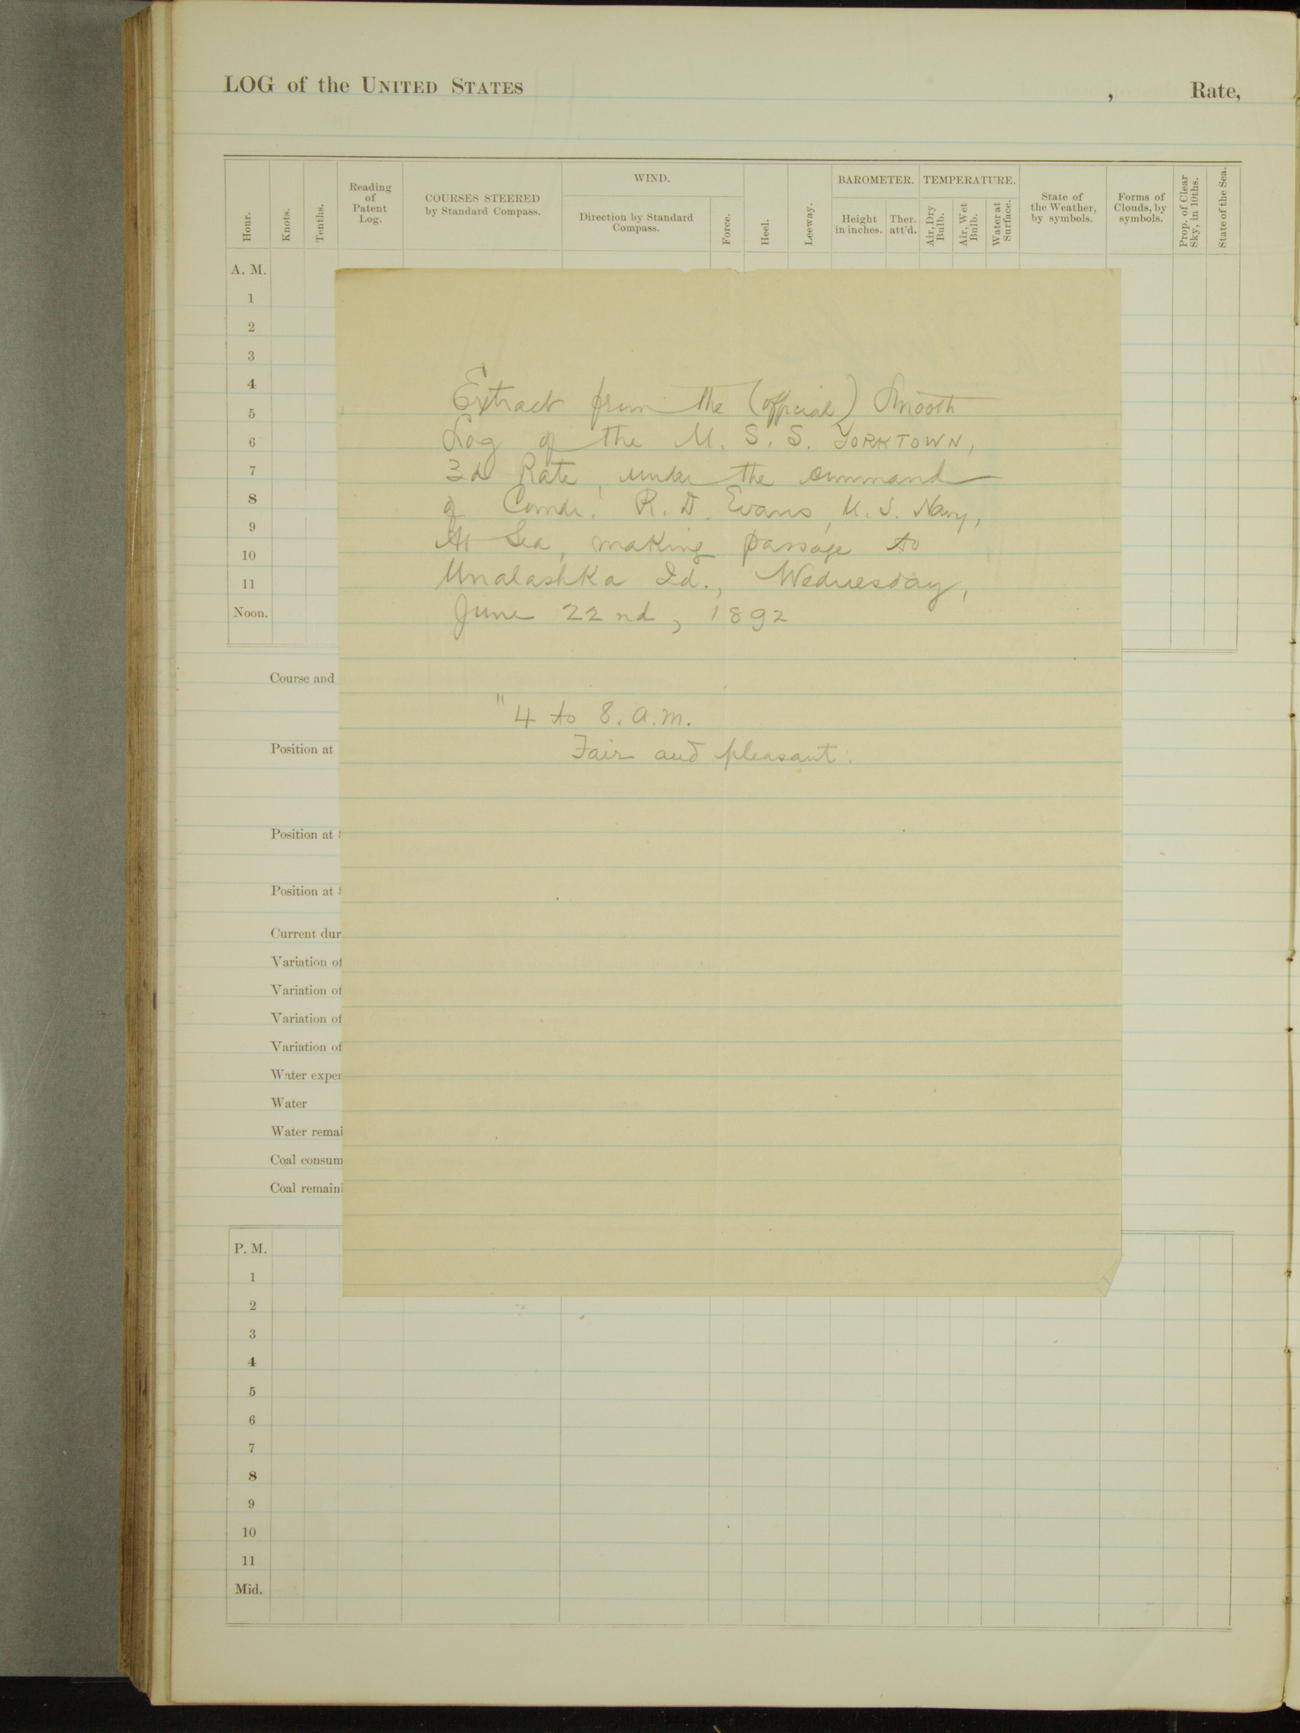 LOG of the UNITED STATES , Rate,
Hour.
Knots.
Tenths.
Reading
of
Patent
Log.
COURSES STEERED
by Standard Compass.
WIND.
Direction by Standard
Compass.
Force.
Heel.
Leeway.
BAROMETER.
Height
in inches.
Ther.
att'd.
TEMPERATURE.
Air, Dry
Bulb.
Air, Wet
Bulb.
Water at
Surface.
State of
the Weather,
by symbols.
Forms of
Clouds, by
symbols.
Prop. of Clear
Sky, in 10ths.
State of the Sea.
A. M.
1
2
3
4
5
6
7
8
9
10
11
Noon.
Extract from the (official) Smooth
Log of the U. S. S. YORKTOWN,
3d Rate, under the command
of Comdr. R. D. Evans, U. S. Navy,
At Sea, making passage to
Unalashka Id., Wednesday,
June 22nd, 1892
"4 to 8. a.m.
Fair and pleasant.
Course and
Position at
Position at
Position at
Current dur
Variation of
Variation of
Variation of
Variation of
Water expen
Water
Water remai
Coal consum
Coal remaini
P. M.
1
2
3
4
5
6
7
8
9
10
11
Mid.